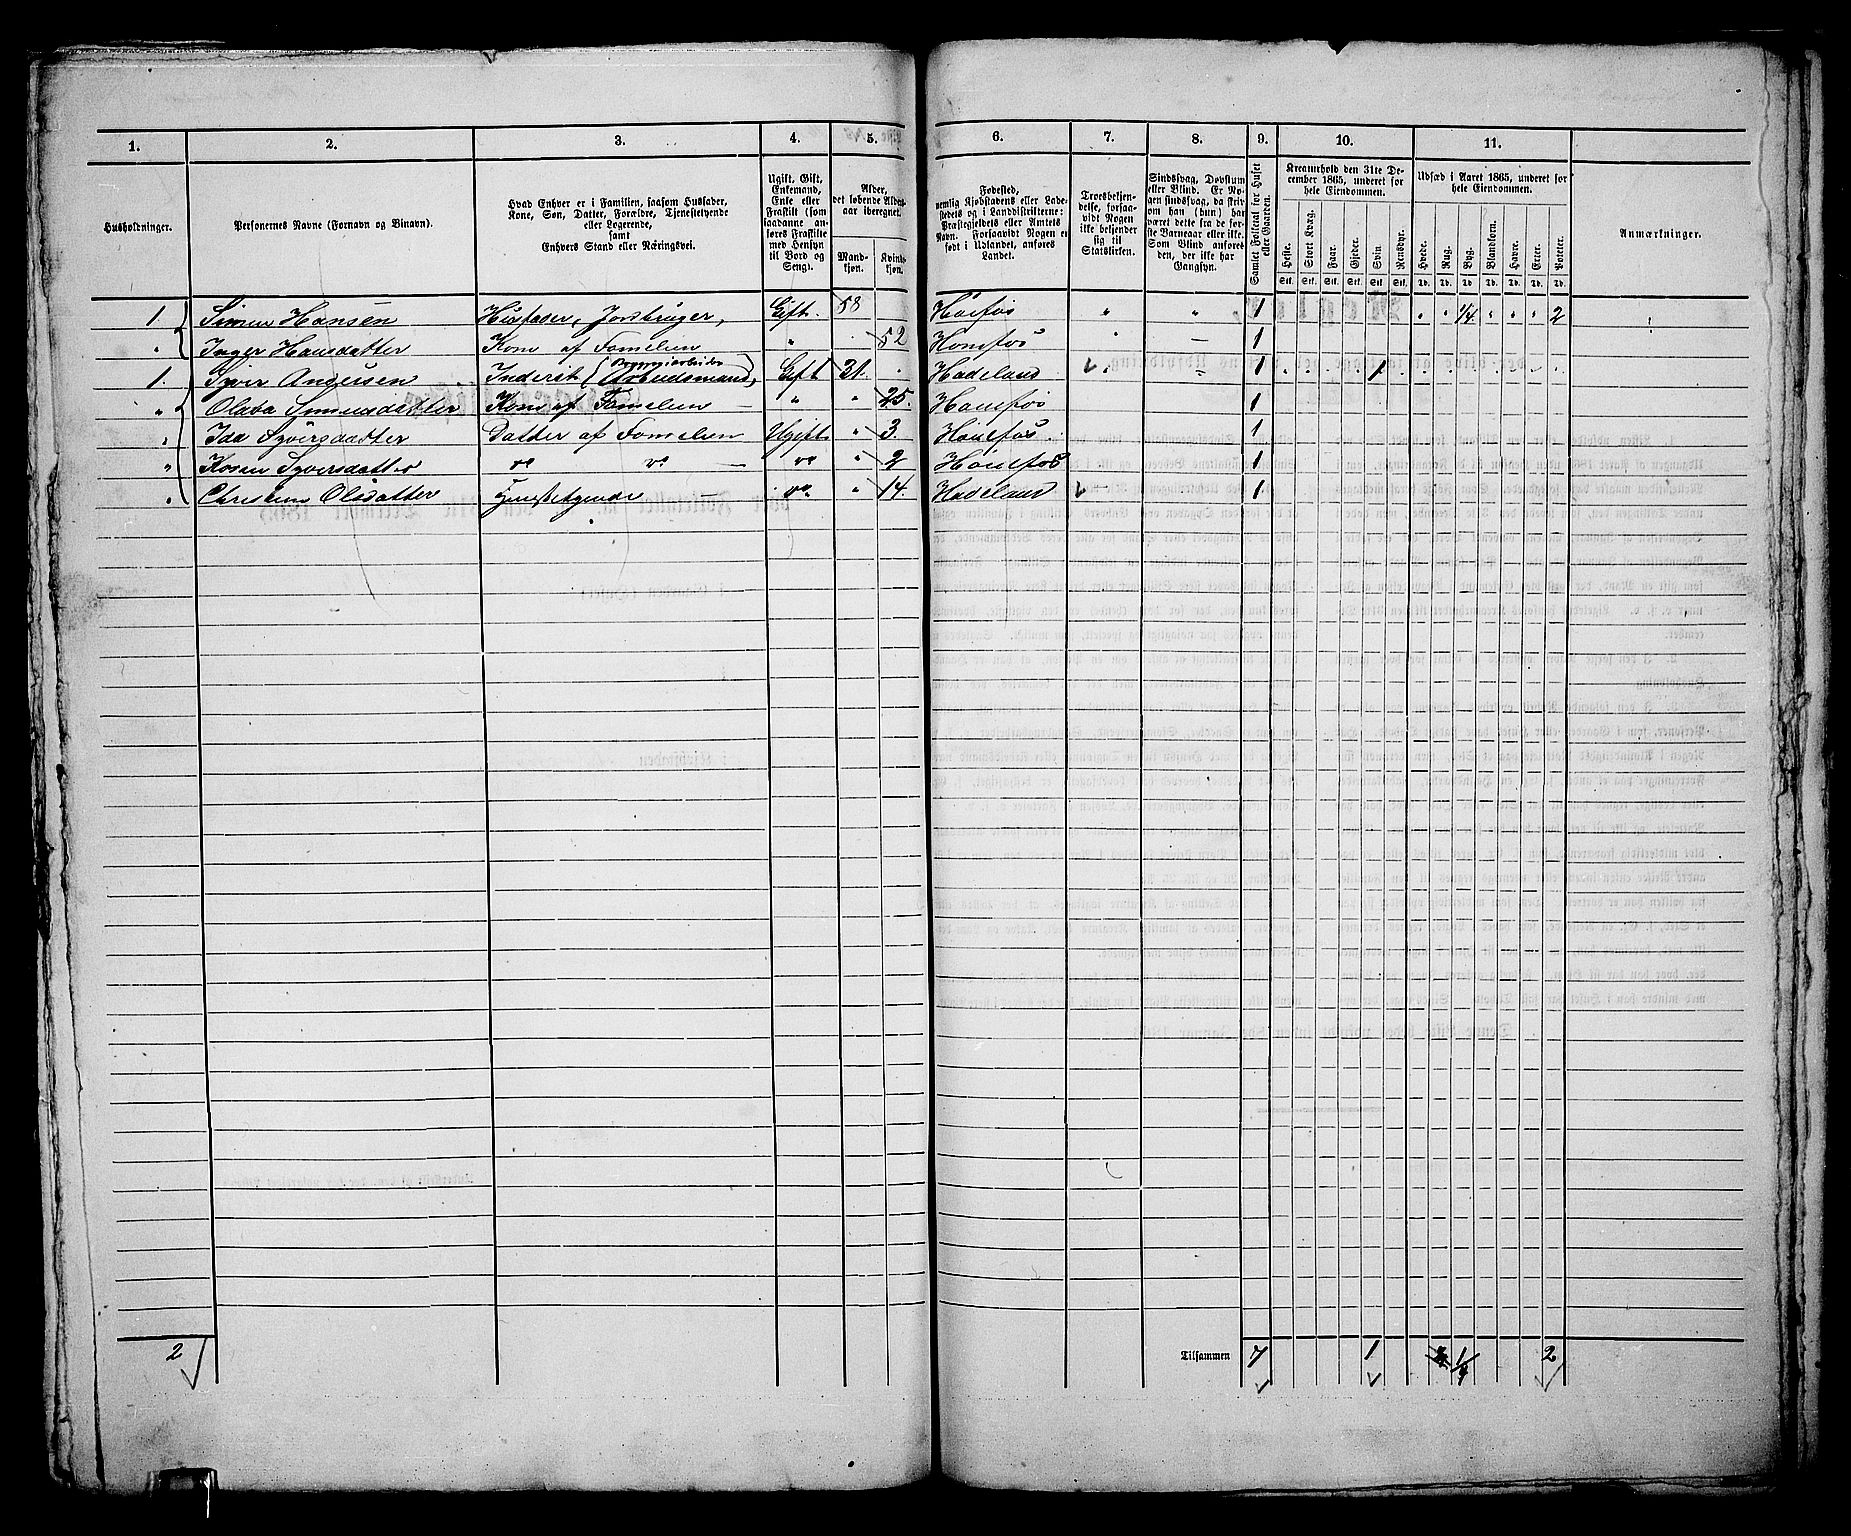 1. 2. 3. 4. 5. 6. 7. 8. 9. 10. 11.
Husholdninger.
Personernes Navne (Fornavn og Binavn).
Hvad Enhver er i Familien, saasom Husfader,
Kone, Søn, Datter, Forældre, Tjenestetyende
eller Logerende,
samt
Enhvers Stand eller Næringsvei.
Ugift, Gift,
Enkemand,
Enke eller
Fraskilt (som
saadanne anføres
Fraskilte
med Hensyn
til Bord og
Seng).
Alder,
det løbende Alders-
aar iberegnet.
Mand-
kjøn.
Kvinde-
kjøn.
Fødested,
nemlig Kjøbstadens eller Lade-
stedets og i Landdistrikterne:
Præstegjeldets eller Amtets
Navn. Forsaavidt Nogen er
født i Udlandet, anføres
Landet.
Troesbekjen-
delse, forsaa-
vidt Nogen
ikke bekjender
sig til
Statskirken.
Sindssvag, Døvstum
eller Blind. Er No-
gen sindssvag, da skriv
om han (hun) har
været dette fra de før-
ste Barneaar eller ikke.
Som Blind anføres
den, der ikke har
Gangsyn.
Samlet Folketal for Huset
eller Gaarden.
Kreaturhold den 31te De-
cember 1865, underet for
hele Eiendommen.
Heste. Stort Kvæg. Faar. Gjeder. Svin Rensdyr.
Stk. Stk. Stk. Stk. Stk. Stk.
Udsæd i Aaret 1865, underet for
hele Eiendommen.
Hvede. Rug. Byg. Blandkorn. Havre. Erter. Poteter.
Td. Td. Td. Td. Td. Td. Td.
Anmærkninger.
1. Simen Hansen Husfader, Jordbruger, Gift. 58 Hønefos " " 1 1/4 2
" Inger Hansdatter Kone af Familien " 52 Hønefos 1
1. Syver Andersen Inderst (Arbeidsmand) Gift 31. Hadeland 1 1
" Olava Simensdatter Kone af Familien " " 25. Hønefos 1
" Ida Syversdatter Datter af Familien Ugift " 3. Hønefos. 1
" Karen Syversdatter do do do " 2 Hønefos 1
" Christine Olsdatter Tjenestetyende do. " 14. Hadeland 1
2 Tilsammen 7 1 1/4 2